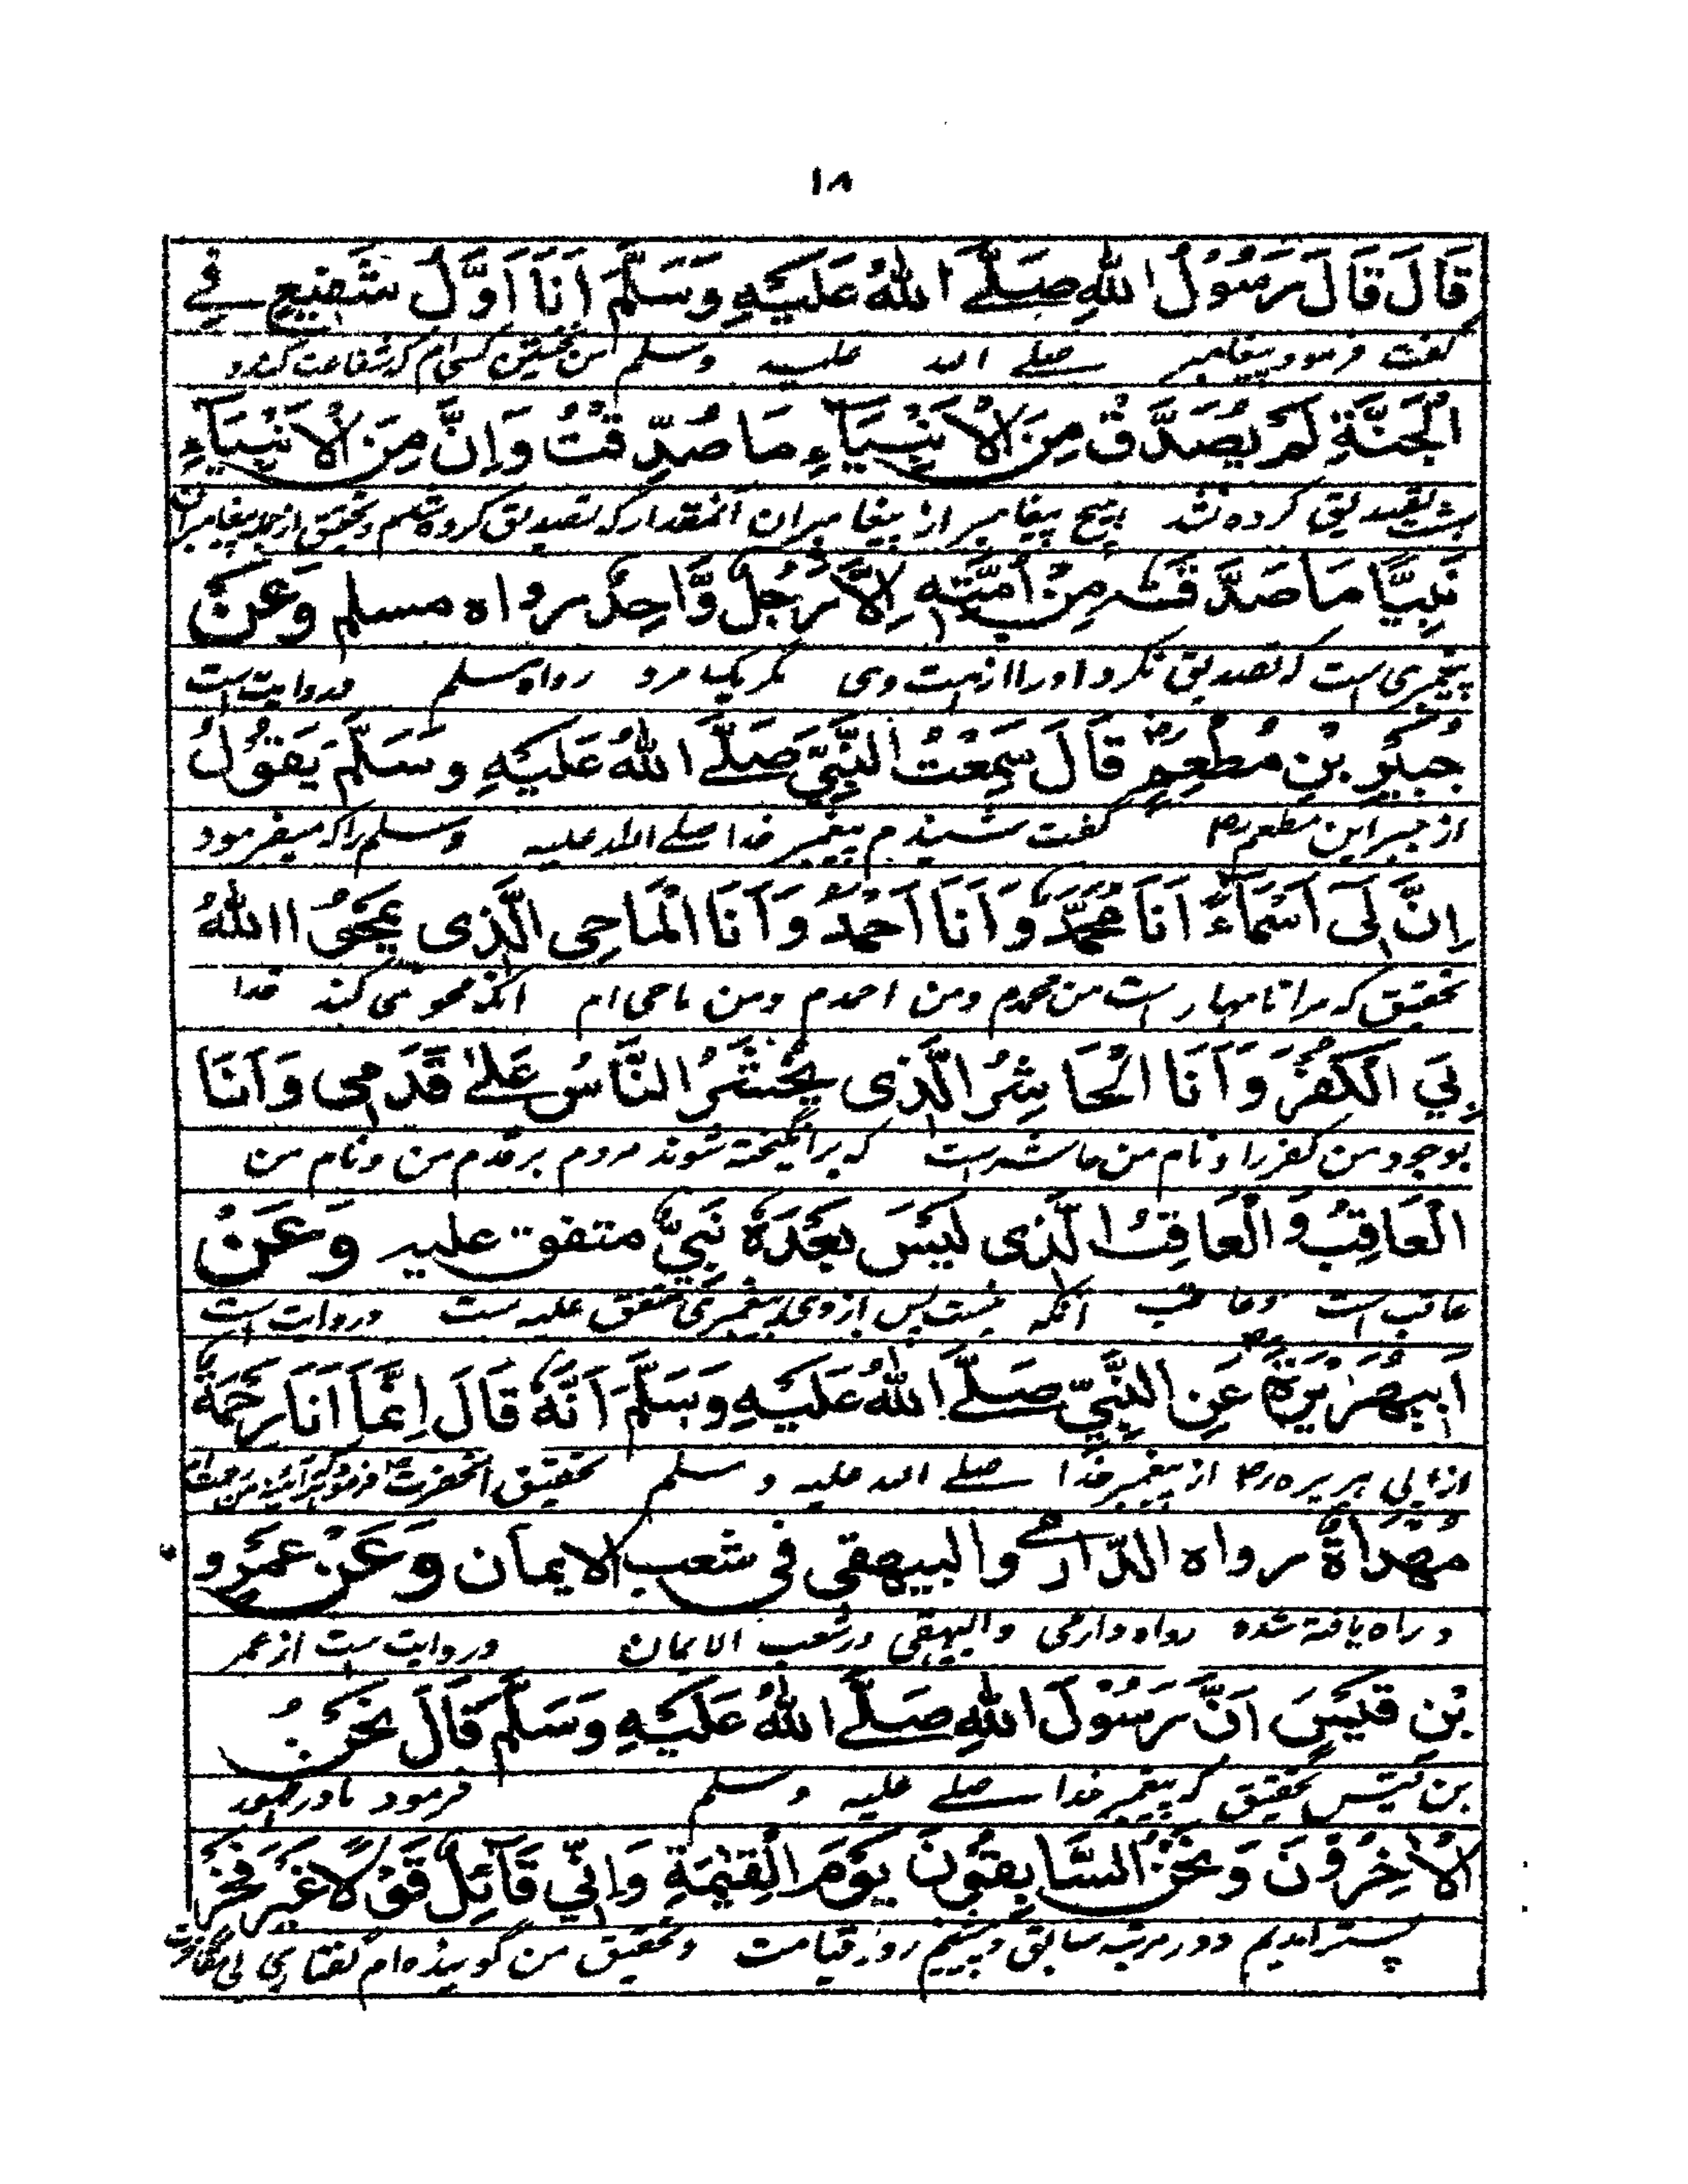 ١٨
قَالَ قَالَ رَسُوْلُ اللهِ صَلَّے اللهُ عَلَیْهِ وَسَلَّمَ اَنَا اَوَّلُ شَفِیْعٍ فِے
گفت فرمود پیغامبر صلے اللہ علیہ وسلم من نخستین کسی ام کہ شفاعت کند در
الْجَنَّةِ لَمْ یُصَدَّقْ مِنَ الْاَنْبِیَآءِ مَا صُدِّقْتُ وَاِنَّ مِنَ الْاَنْبِیَآءِ
بہشت تصدیق کردہ نشد ہیچ پیغامبر از پیغامبران آنمقدار کہ تصدیق کردہ شدم و تحقیق از جملہ پیغامبران
نَبِیًّا مَا صَدَّقَهٗ مِنْ اُمَّتِهٖ اِلَّا رَجُلٌ وَّاحِدٌ رواه مسلم وَعَنْ
پیغمبری است کہ تصدیق نکرد او را از امت وی مگر یک مرد رواہ مسلم و روایت است
جُبَیْرِ بْنِ مُطْعِمٍ رض قَالَ سَمِعْتُ النَّبِیَّ صَلَّے اللهُ عَلَیْهِ وَسَلَّمَ یَقُوْلُ
از جبیر ابن مطعم رض گفت شنیدم پیغمبر خدا صلے اللہ علیہ وسلم را کہ میفرمود
اِنَّ لِیْٓ اَسْمَآءً اَنَا مُحَمَّدٌ وَاَنَا اَحْمَدُ وَاَنَا الْمَاحِی الَّذِی یَمْحُوْ االلهُ
تحقیق کہ مرا نامہا است من محمدم ومن احمدم ومن ماحی ام آنکہ محو می کند خدا
بِیَ الْکُفْرَ وَاَنَا الْحَاشِرُ الَّذِی یُحْشَرُ النَّاسُ عَلٰے قَدَمِی وَاَنَا
بوجود من کفر را و نام من حاشر است کہ برانگیختہ شوند مردم بر قدم من و نام من
الْعَاقِبُ وَالْعَاقِبُ الَّذِی لَیْسَ بَعْدَهٗ نَبِیٌّ متفق علیہ وَعَنْ
عاقب است و عاقب آنکہ نیست پس از وی پیغمبری متفق علیہ ست و روایت است
اَبِیْ هُرَیْرَةَ رض عَنِ النَّبِیِّ صَلَّے اللهُ عَلَیْهِ وَسَلَّمَ اَنَّهٗ قَالَ اِنَّمَا اَنَا رَحْمَةٌ
از ابی ہریرہ رض از پیغمبر خدا صلے اللہ علیہ وسلم تحقیق آنحضرت فرمود
مُهْدَاةٌ رواه الدّارمے والبیهقی فی شعب الایمان وَعَنْ عَمْرِو
و راہ یافتہ شدہ رواہ دارمی والبیہقی در شعب الایمان و روایت است از عمر
بْنِ قَیْسٍ اَنَّ رَسُوْلَ اللهِ صَلَّے اللهُ عَلَیْهِ وَسَلَّمَ قَالَ نَحْنُ
بن قیس تحقیق کہ پیغمبر خدا صلے علیہ وسلم فرمود ما در
الْاٰخِرُوْنَ وَنَحْنُ السَّابِقُوْنَ یَوْمَ الْقِیٰمَةِ وَاِنِّیْ قَآئِلٌ قَوْلًا غَیْرَ فَخْرٍ
پستر آمدیم و در مرتبہ سابق و پیشیم روز قیامت و تحقیق من گویندہ ام گفتاری بی